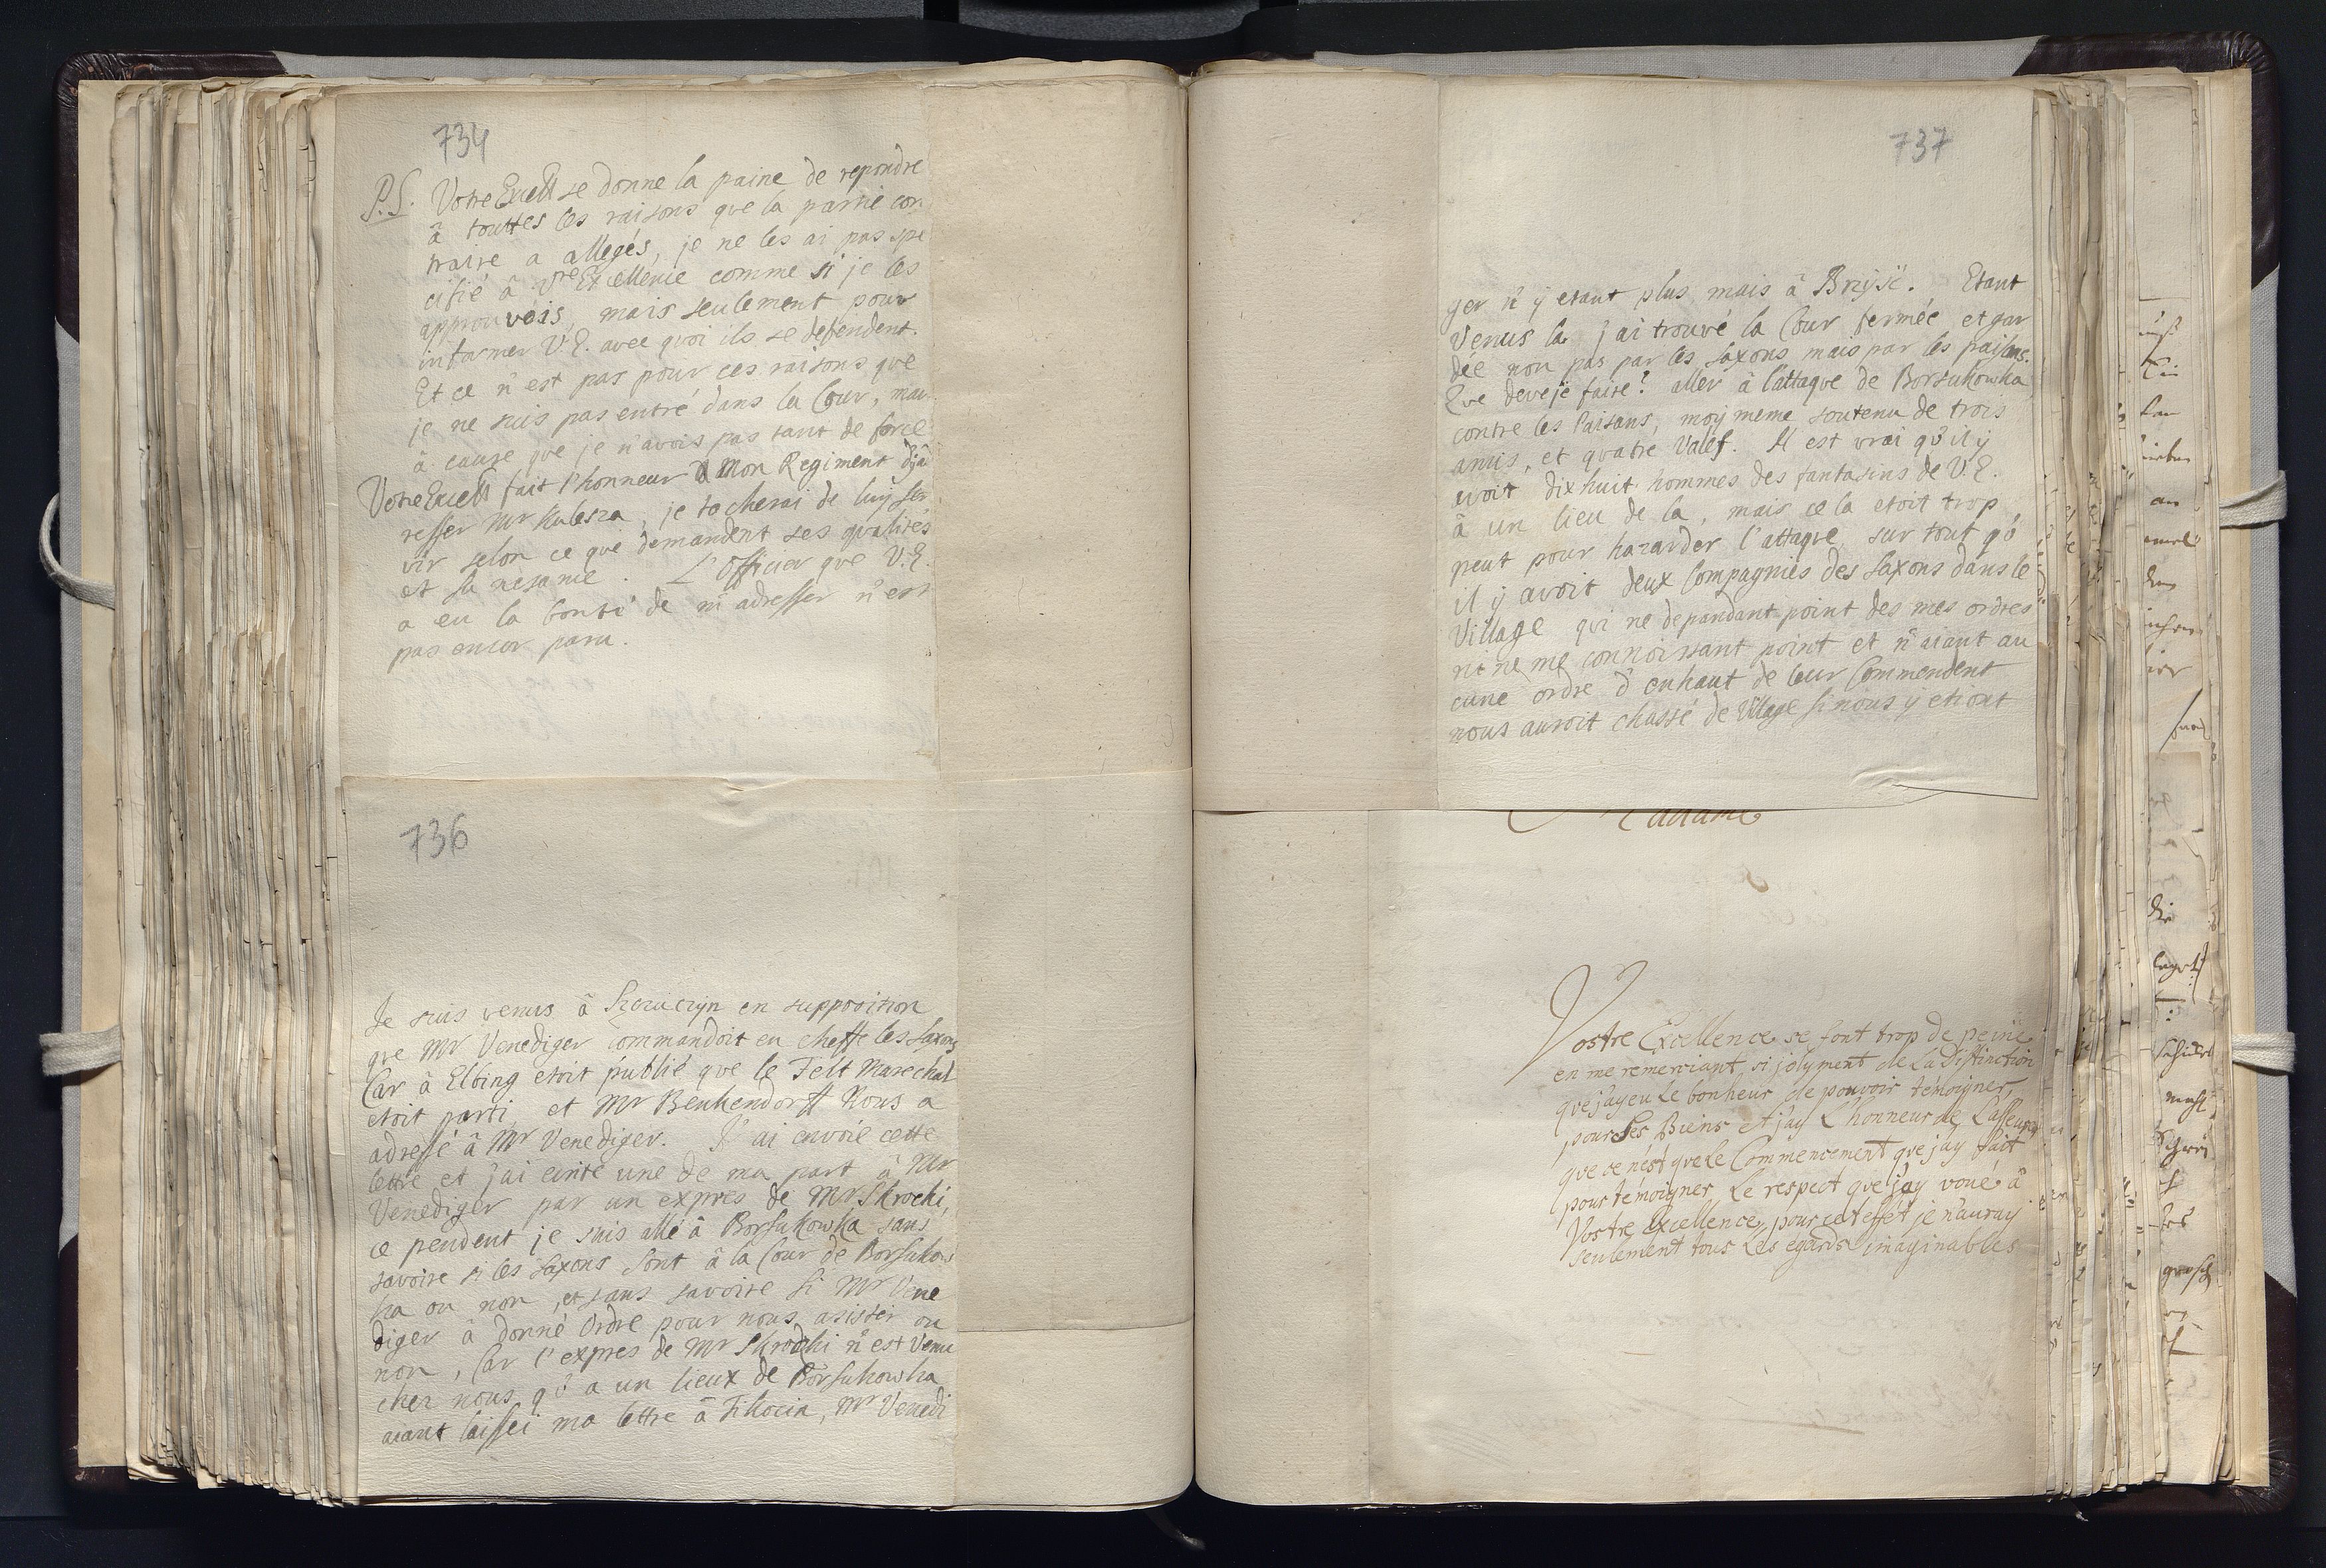 734
P.S. Votre Excell se donne la paine de repondre
â touttes les raisons que la partie con
traire a allegés, je ne les ai pas spe
cifié â Vtre Excellence comme si je les
approuvois, mais seulement pour
informer V.E. avec qvoi ils se defendent.
Et ce n'est pas pour ces raisons qve
je ne suis pas entré dans la Cour, mais
â cause qve je n'avois pas tant de force
Votre Excell fait l'honneur â Mon Regiment d'ja
resser Mr Kulesza, je tacherai de luy ser
vir selon ce qve demandent ses qvalités
et sa . L'Officier que V.E.
a eu la bonté de m'adresser n'est
pas encor paru.
736
Je suis venus â Szczuczyn en supposition
qve Mr Venediger commandoit en cheffe les Saxons
Car â Elbing etoit publié qve le Felt Marechal
etoit parti, et Mr Benkendorff Nous a
adressé â Mr Venediger. J'ai envoié cette
lettre et j'ai ecrite une de ma part â Mr
Venediger par un expres de Mr Skrocki,
ce pendent je suis allé â Borsukowka sans
savoire si les Saxons sont â la Cour de Borsukow
ka ou non, et sans savoire si Mr Vene
diger â donné Ordre pour nous asister ou
non, Car l'expres de Mr Skrocki n'est Venu
chez nous qu'a un lieux de Borsukowka
aiant laissei ma lettre â Tikocin, Mr Venedi
737
ger n'y etant plus mais â Brzysć. Etant
Venus la j'ai trouvé la Cour fermée et gar
dée non pas par les Saxons mais par les paisans.
Qve deveje faire? aller â l'attaqve de Borsukowka
contre les Paisans, moy meme soutenu de trois
amis, et qvatre Valets. Il est vrai qv'il y
avoit dixhuit hommes des fantasins de V.E.
â un lieu de la, mais ce la etoit trop
peut pour hazarder l'attaqve sur tout qv'
il y avoit deux Compagnies des Saxons dans le
Village qvi ne depandant point des mes ordres
ni ne me connoissant point et n'aiant au
cune ordre d'enhaut de leur Commendent
nous auroit chassé de Village si nous y etiont
Madame
Vostre Excellence se font trop de peine
en me remerciant, si jolyment de La distinction
que j'ay eu Le bonheur de pouvoir témoigner
pour Ses Biens et j'ay L'honneur de L'asseurer
que ce n'est que Le Commencement que j'ay fait
pour témoigner Le respect que j'ay voué â
Vostre Excellence, pour cet effet je n'auray
seulement tous Les egards imaginables